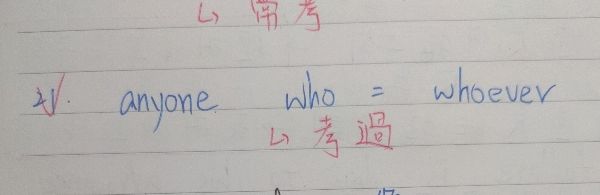 ↳ 常考
21. anyone who = whoever
↳ 考過